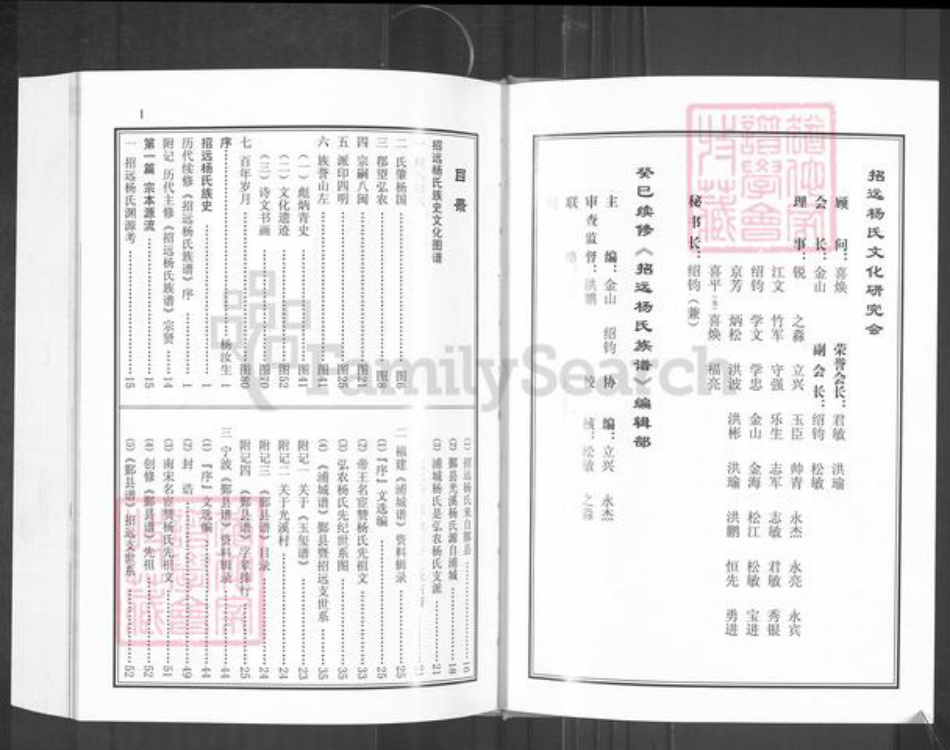 招远杨氏文化研究会
顾 问：喜焕 荣誉会长：君敏 洪瑜
会 长：金山 副会长：绍钧 松敏
理 事：锐 之淼 立兴 玉臣 帅青 永杰 永亮 永宾
江文 竹军 守强 乐生 志军 志敏 君敏 秀银
绍钧 学文 学忠 金山 金海 松江 松敏 宝进
京芳 炳松 洪波 洪彬 洪瑜 洪鹏 恒先 勇进
喜平 喜焕 福亮
秘书长：绍钧（兼）
癸巳续修《招远杨氏族谱》编辑部
主 编：金山 绍钧 协 编：立兴 永杰
审查监督：洪鹏 校 核：松敏 之淼
联 络：
目 录
招远杨氏族史文化图谱
二 氏肇杨国……图6
三 郡望弘农……图8
四 宗嗣八闽……图21
五 派印四明……图25
六 族誉山左……图41
（一）彪炳青史……图41
（二）文化遗迹……图52
（三）诗文书画……图70
七 百年岁月……图80
序……杨汝生 1
招远杨氏族史……1
历代续修《招远杨氏族谱》序……1
附记 历代主修《招远杨氏族谱》宗贤……14
第一篇 宗本源流……15
一 招远杨氏渊源考……15
(1) 招远杨氏来自鄞县……16
(2) 鄞县光溪杨氏源自浦城……18
(3) 浦城杨氏是弘农杨氏支派……21
二 福建《浦城谱》资料辑录……25
(1)『序』文选编……25
(2) 帝王名宦赞杨氏先祖文……33
(3) 弘农杨氏先纪世系图……35
(4)《浦城谱》鄞县暨招远支世系……35
附记一 关于《玉玺谱》……23
附记二 关于光溪村……24
附记三 《鄞县谱》目录……24
附记四 《鄞县谱》字辈排行……25
三 宁波《鄞县谱》资料辑录……44
(1)『序』文选编……44
(2) 封 诰……49
(3) 南宋名宦赞杨氏先祖文……51
(4) 创修《鄞县谱》先祖……52
(5)《鄞县谱》招远支世系……52
1
FamilySearch